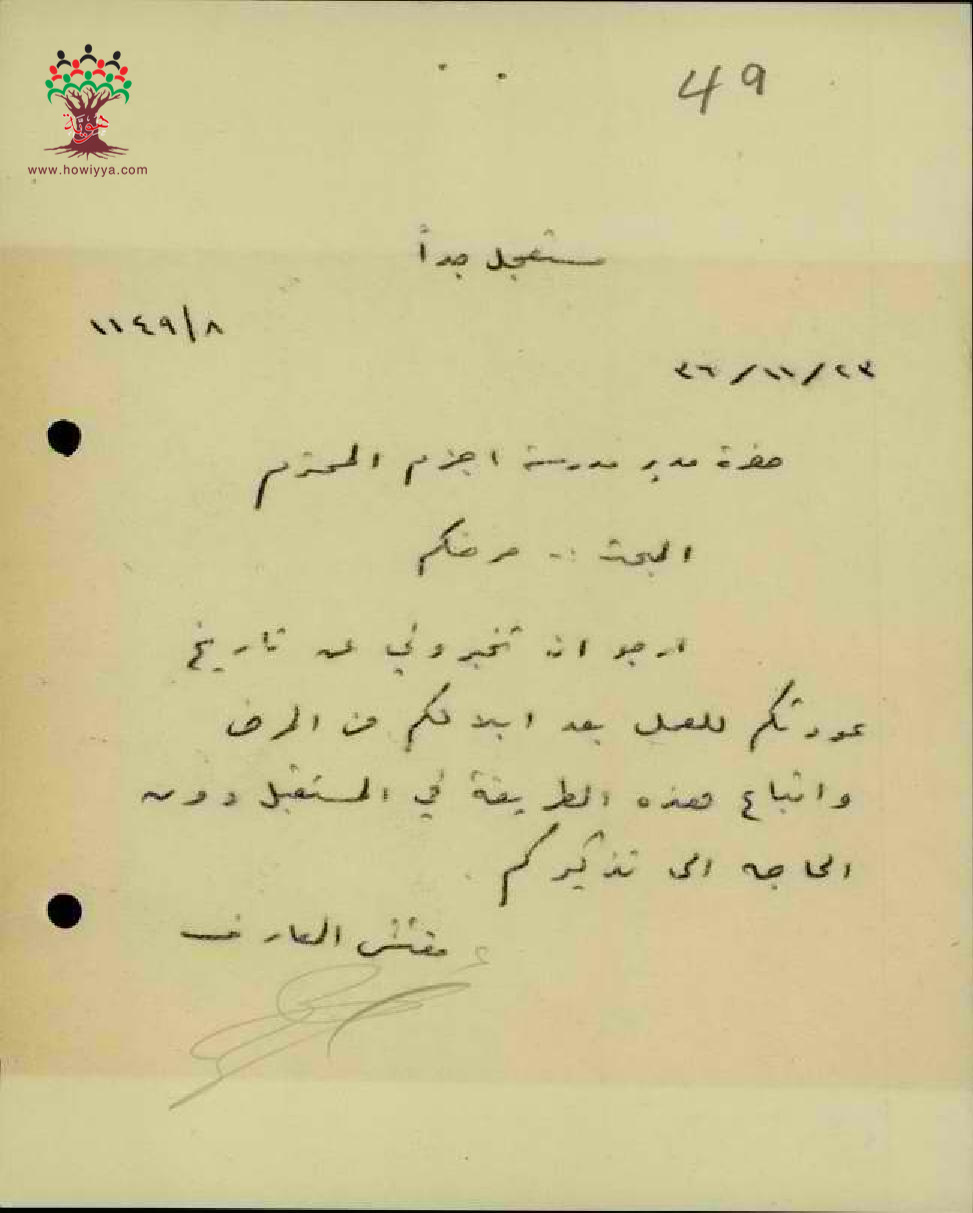 49
هوية
www.howiyya.com
مستعجل جداً
١١٤٩/٨
٢٣/١١/٣٦
حضرة مدير مدرسة اجزم المحترم
البحث :- مرضكم
ارجو ان تخبروني عن تاريخ
عودتكم للعمل بعد ابلالكم من المرض
واتباع هذه الطريقة في المستقبل دون
الحاجه الى تذكيركم
مفتش المعارف